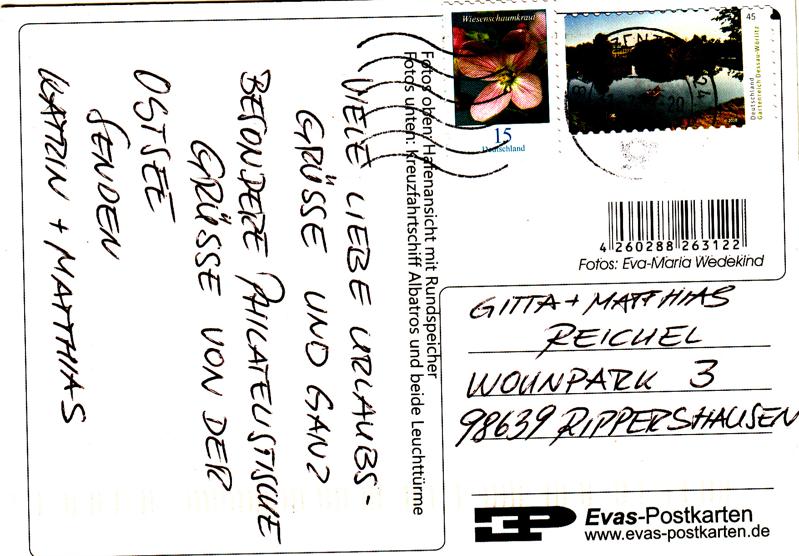 VIELE LIEBE URLAUBS-
GRÜSSE UND GANZ
BESONDERE PHILATELISTISCHE
GRÜSSE VON DER
OSTSEE
SENDEN
KATRIN + MATTHIAS
Fotos oben: Hafenansicht mit Rundspeicher
Fotos unten: Kreuzfahrtschiff Albatros und beide Leuchttürme
Wiesenschaumkraut
15
Deutschland
45
Deutschland
Gartenreich Dessau-Wörlitz
4 260288 263122
Fotos: Eva-Maria Wedekind
GITTA + MATTHIAS
REICHEL
WOHNPARK 3
98639 RIPPERSHAUSEN
EP Evas-Postkarten
www.evas-postkarten.de